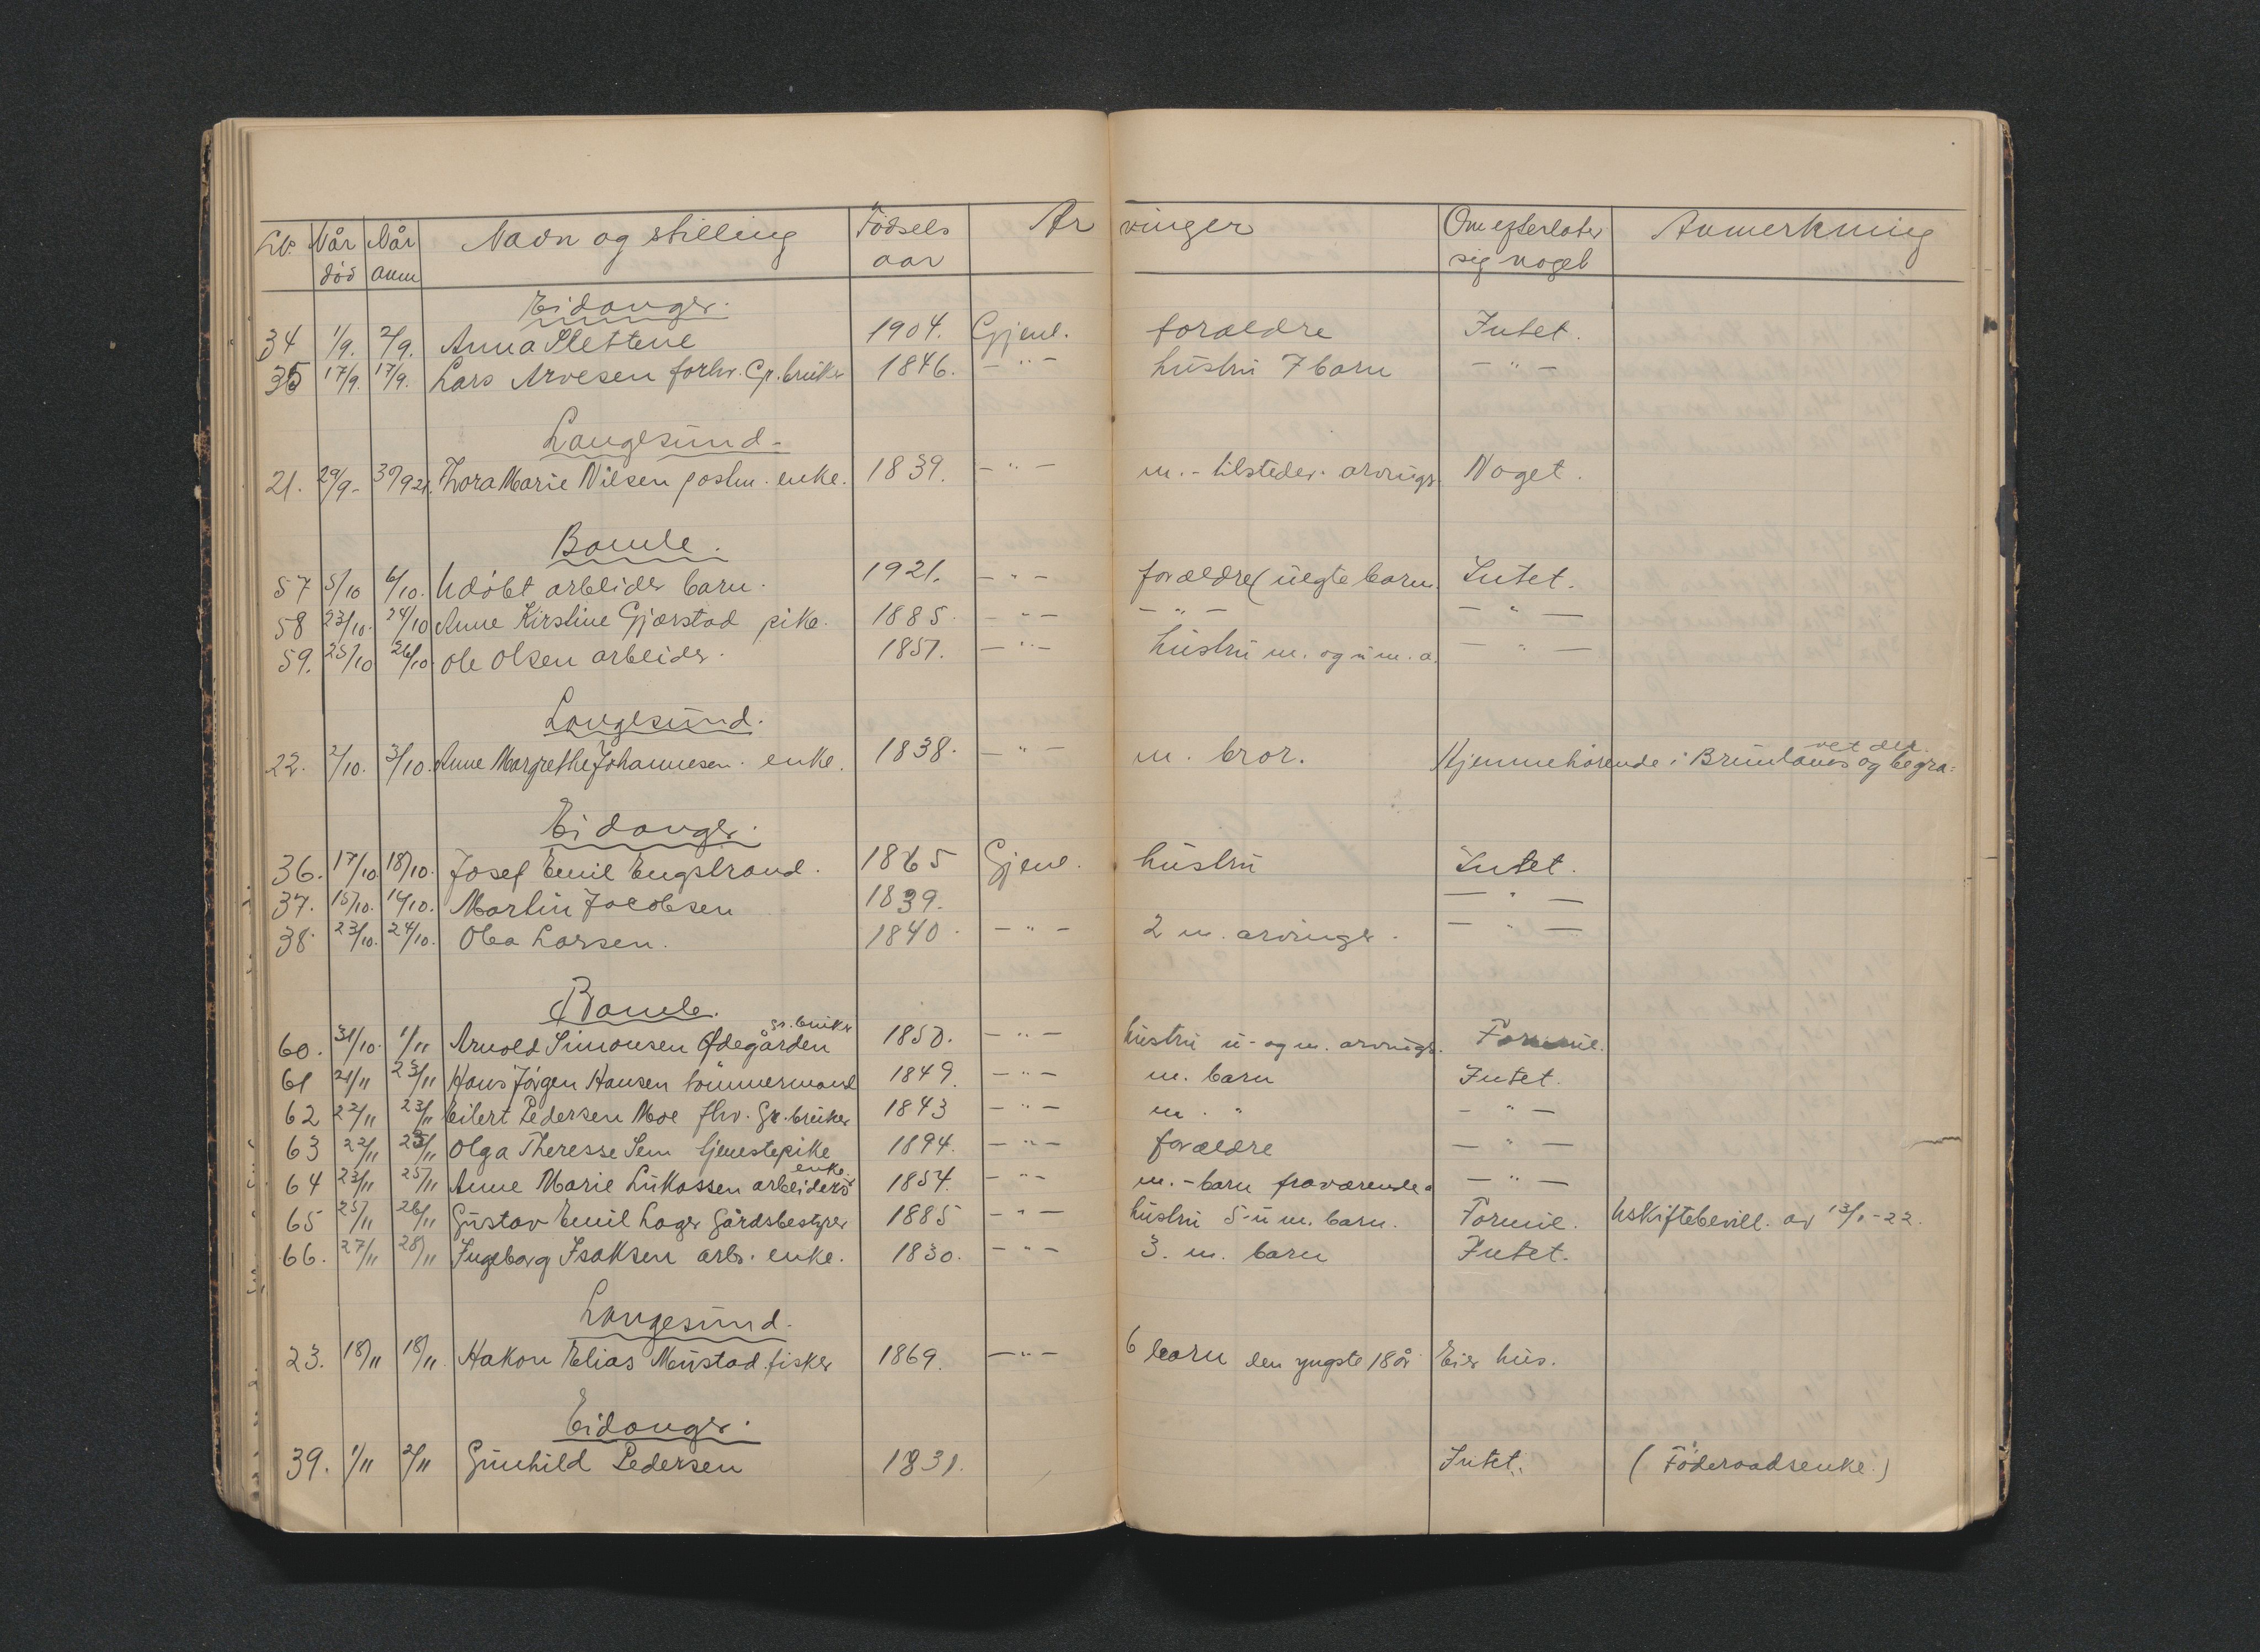 Lb. Når Når Navn og stilling Fødsels Ar vinger Om efterlater Anmerkning
død anm aar sig noget
Eidanger.
34 1/9. 2/9. Anna Slettene 1904. Gjenl. forældre Intet.
35 17/9. 17/9. Lars Arvesen forhv. Gr. bruker 1846. - " - hustru 7 barn - " -
Langesund.
21. 29/9- 30/9 21. Thora Marie Nilsen postm. enke. 1839. - " - m. - tilsteder. arvinger Noget.
Bamle.
57 5/10 6/10. Udøbt arbeider barn. 1921. - " - forældre (uegte barn. Intet.
58 23/10. 24/10 Anne Kirstine Gjerstad pike. 1885. - " - - " - - " -
59. 25/10 26/10. Ole Olsen arbeider. 1851. - " - hustru m. og u m. a. - " -
Langesund.
22. 2/10. 3/10. Anne Margrethe Johannesen. enke. 1838. - " - m. bror. Hjemmehørende i Brunlanes og begra=
vet der.
Eidanger.
36. 17/10 18/10. Josef Emil Engstrand. 1865 Gjenl. hustru Intet.
37. 15/10. 16/10. Martin Jacobsen 1839. - " -
38. 23/10. 24/10. Olea Larsen. 1840. - " - 2 m. arvinger. - " -
Bamle.
60. 31/10. 1/11 Arnold Simonsen Ødegården gr. bruker 1850. - " - hustru u- og m. arvinger. Formue.
61 21/11 23/11 Hans Jørgen Hansen tømmermand 1849. - " - m. barn Intet.
62 22/11 23/11 Eilert Pedersen Moe fhv. Gr. bruker 1843 - " - m. " - " -
63 22/11 23/11 Olga Theresse Sem tjenestepike 1894. - " - forældre - " -
64 23/11 25/11 Anne Marie Lukassen arbeiders enke. 1854. - " - m. - barn fraværende - " -
65 25/11 26/11 Gustav Emil Lager Gårdsbestyrer 1885 - " - hustru 5 - u m. barn. Formue. Uskiftebevill. av 13/1 - 22.
66. 27/11 28/11 Ingeborg Isaksen arb. enke. 1830. - " - 3. m. barn Intet.
Langesund.
23. 18/11 18/11. Hakon Elias Mustad fisker 1869. - " - 6 barn den yngste 18 år Eier hus.
Eidanger.
39. 1/11 2/11 Gunhild Pedersen 1831. Intet. (Føderaadsenke.)